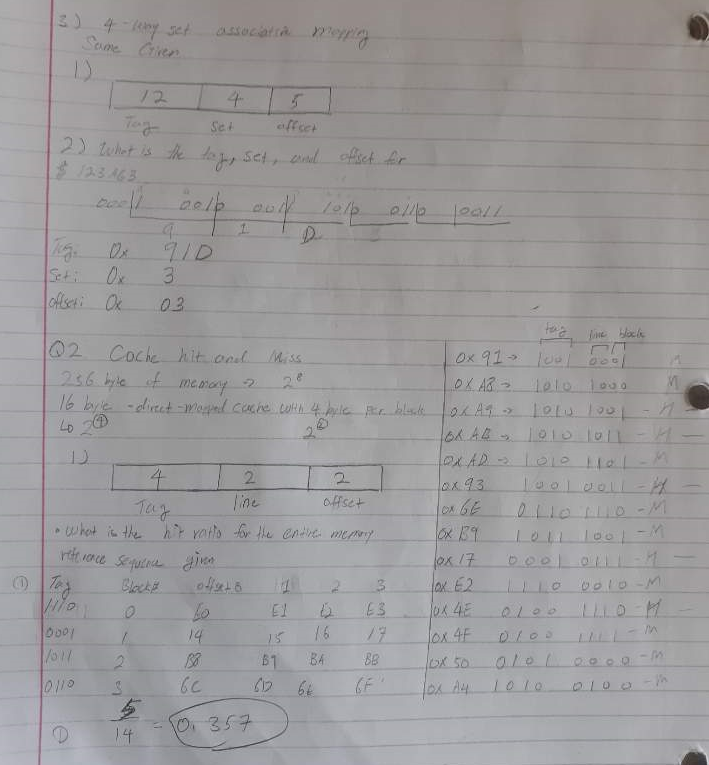 3) 4-way set associative mapping
Same Given
1)
12 4 5
Tag set offset
2) What is the tag, set, and offset for
$ 123A63
0001 0010 0011 1010 0110 0011
9 1 D 3
Tag: 0x 91D
Set: 0x 3
offset: 0x 03
Q2 Cache hit and Miss
256 byte of memory → 2^8
16 byte -direct-mapped cache with 4 byte per block
↳ 2^4 2^2
1)
4 2 2
Tag line offset
• What is the hit ratio for the entire memory
reference sequence given
① Tag Block# offset 0 1 2 3
1110 0 E0 E1 E2 E3
0001 1 14 15 16 17
1011 2 B8 B9 BA BB
0110 3 6C 6D 6E 6F
① 5/14 = 0.357
tag line block
0x 91 → 1001 0001 M
0x A8 → 1010 1000 M
0x A9 → 1010 1001 - H -
0x AB → 1010 1011 - H -
0x AD → 1010 1101 - M
0x 93 1001 0011 - H -
0x 6E 0110 1110 - M
0x B9 1011 1001 - M
0x 17 0001 0111 - H -
0x E2 1110 0010 - M
0x 4E 0100 1110 - H -
0x 4F 0100 1111 - M
0x 50 0101 0000 - M
0x A4 1010 0100 - M